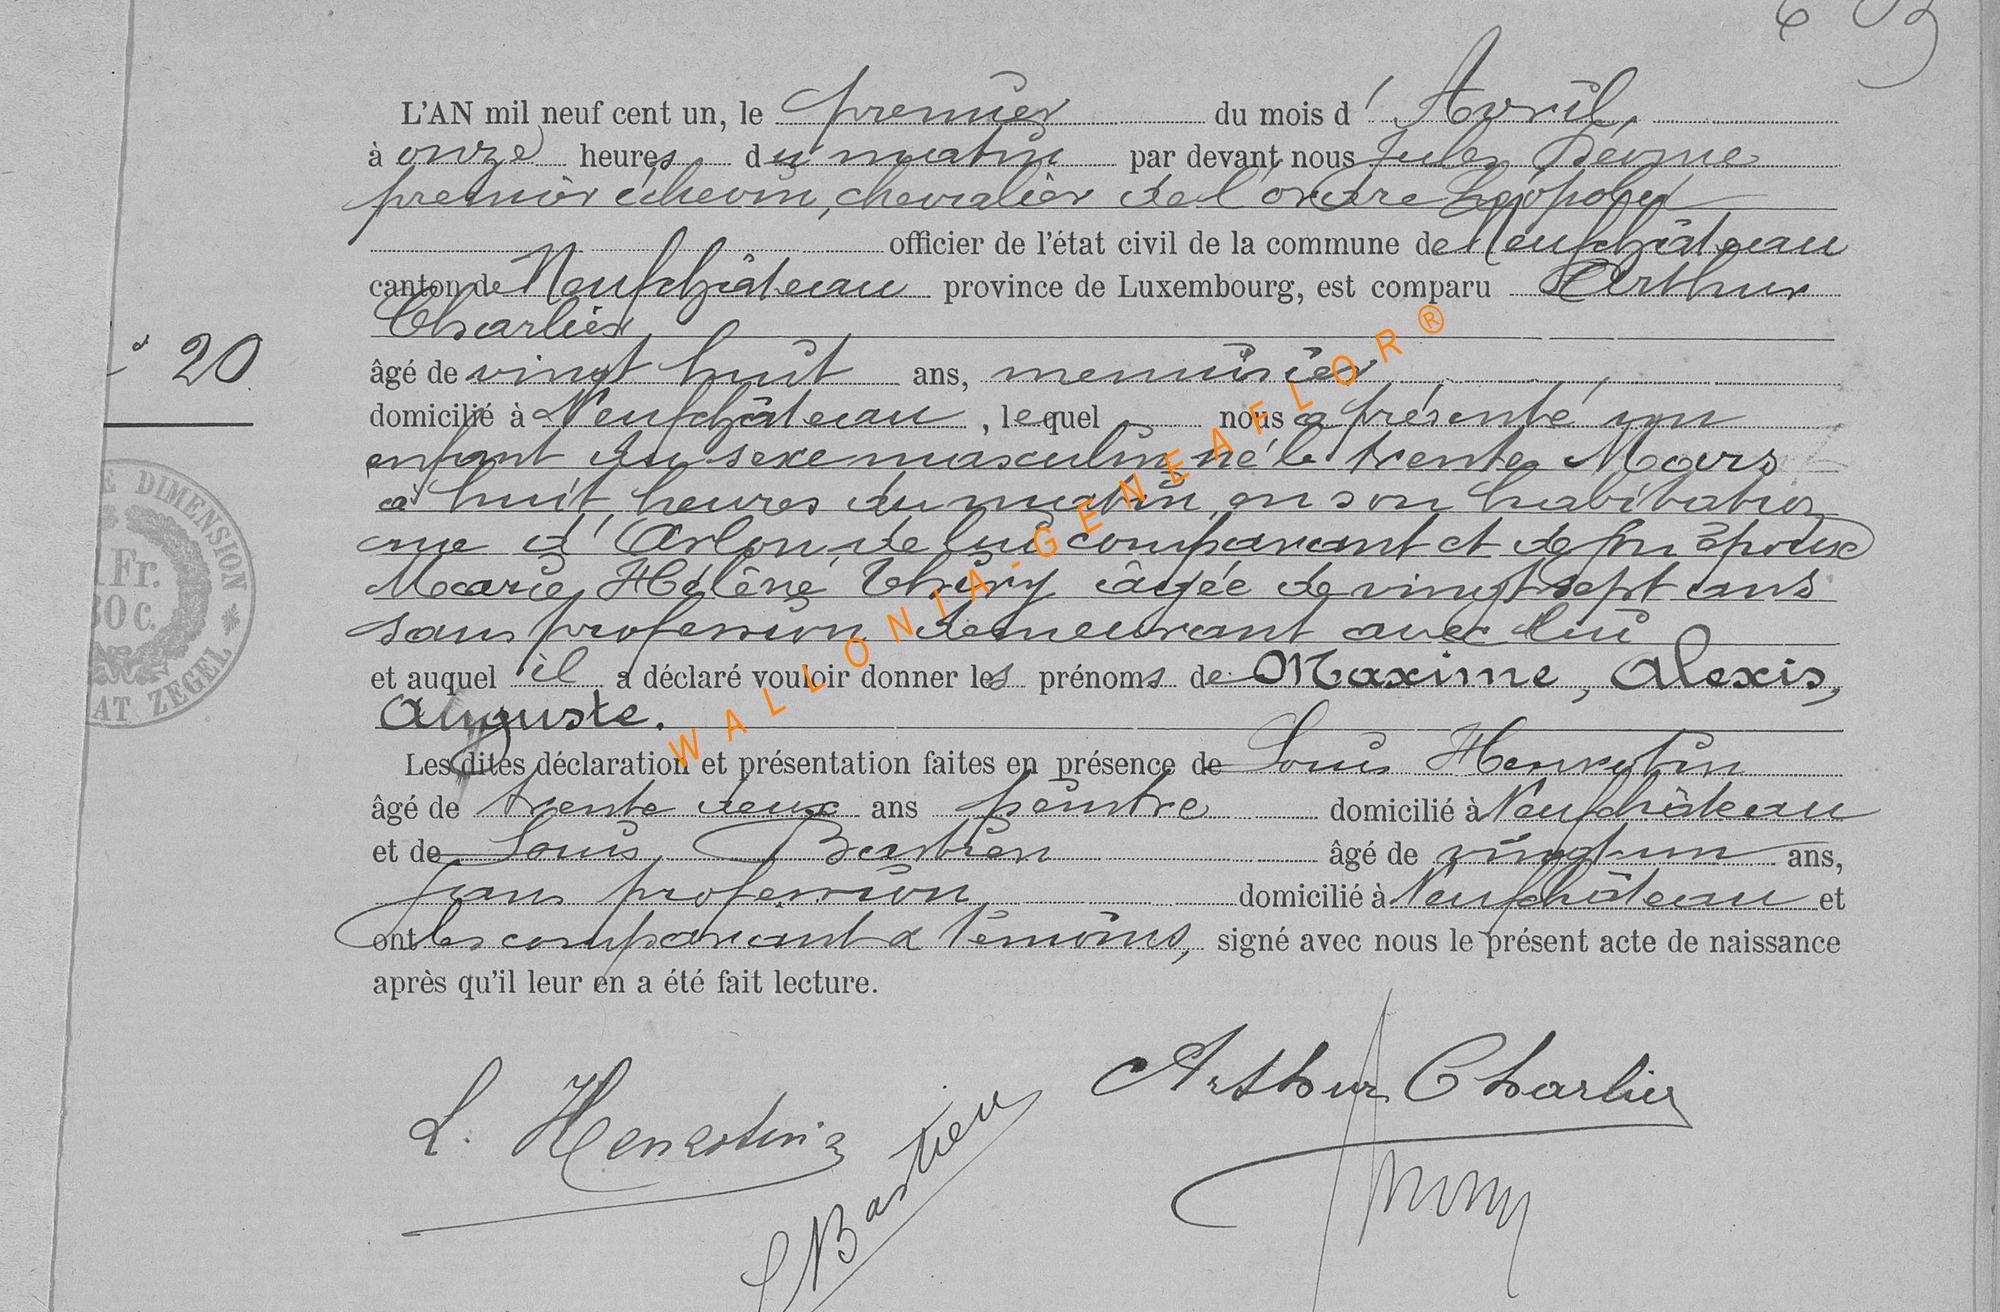 L'AN mil neuf cent un, le premier du mois d' Avril,
à onze heures du matin par devant nous Jules
premier échevin, chevalier de l'ordre Léopold
officier de l'état civil de la commune de Neufchâteau
canton de Neufchâteau province de Luxembourg, est comparu Arthur
Charlier
N° 20
âgé de vingt huit ans, menuisier
domicilié à Neufchâteau, lequel nous a présenté un
enfant du sexe masculin, né le trente Mars
à huit heures du matin, en son habitation
rue d'Arlon, de lui comparant et de son épouse
Marie Hélène Thiry âgée de vingt sept ans
sans profession demeurant avec lui
et auquel il a déclaré vouloir donner les prénoms de Maxime, Alexis,
Auguste.
Les dites déclaration et présentation faites en présence de Louis Henrotin
âgé de trente deux ans peintre domicilié à Neufchâteau
et de Louis Bastien âgé de vingt-un ans,
sans profession domicilié à Neufchâteau et
ont les comparant & témoins, signé avec nous le présent acte de naissance
après qu'il leur en a été fait lecture.
DIMENSION
1 Fr.
30 c.
ZEGEL
WALLONIA-GENEAFLOR®
Arthur Charlier
L. Henrotin
L Bastien